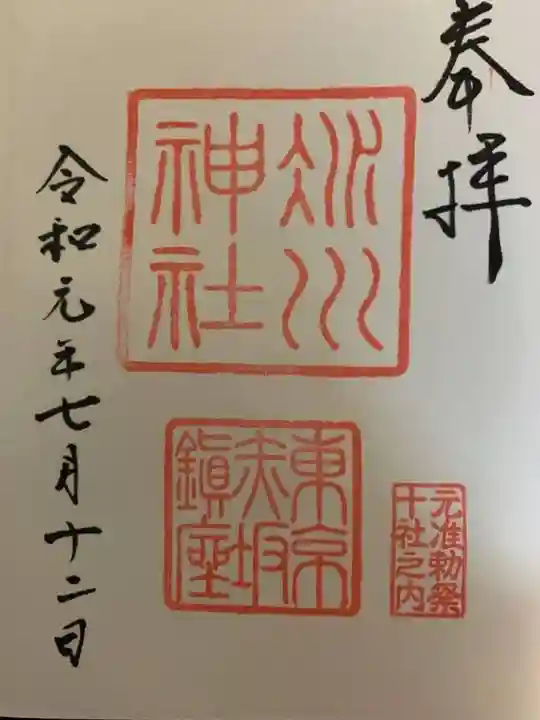 奉拝
冰川
神社
東京
赤坂
鎭座
元准勅祭
十社之内
令和元年七月十二日